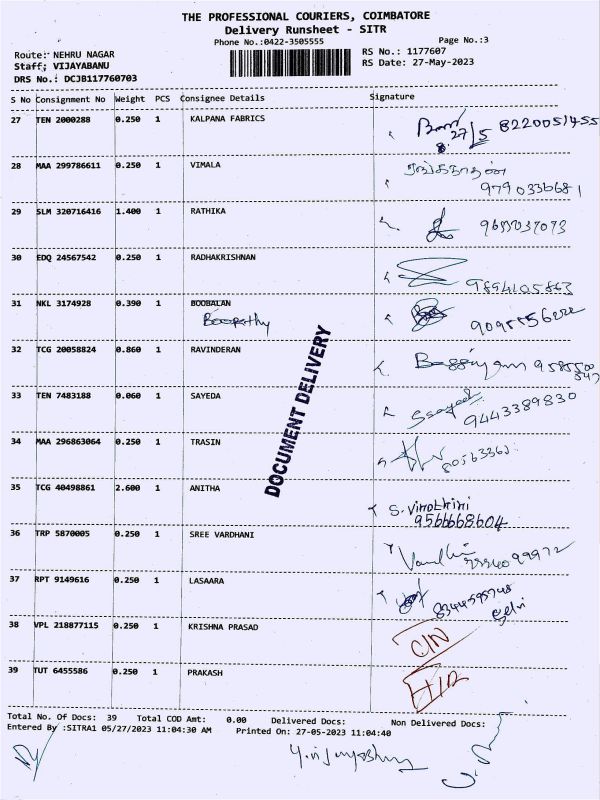 THE PROFESSIONAL COURIERS, COIMBATORE
Delivery Runsheet - SITR
Phone No.:0422-3505555 Page No.:3
Route: NEHRU NAGAR RS No.: 1177607
Staff: VIJAYABANU RS Date: 27-May-2023
DRS No.: DCJB117760703
S No Consignment No Weight PCS Consignee Details Signature
27 TEN 2000288 0.250 1 KALPANA FABRICS 27/5 8220051455
28 MAA 299786611 0.250 1 VIMALA ரங்கநாதன்
9790336681
29 SLM 320716416 1.400 1 RATHIKA
30 EDQ 24567542 0.250 1 RADHAKRISHNAN 9894105863
31 NKL 3174928 0.390 1 BOOBALAN
Boopathy
32 TCG 20058824 0.860 1 RAVINDERAN
33 TEN 7483188 0.060 1 SAYEDA Ssayeed
9443389830
34 MAA 296863064 0.250 1 TRASIN
35 TCG 40498861 2.600 1 ANITHA S. Vinothini
9566668604
36 TRP 5870005 0.250 1 SREE VARDHANI
37 RPT 9149616 0.250 1 LASAARA
38 VPL 218877115 0.250 1 KRISHNA PRASAD C/N
39 TUT 6455586 0.250 1 PRAKASH
DOCUMENT DELIVERY
Total No. Of Docs: 39 Total COD Amt: 0.00 Delivered Docs: Non Delivered Docs:
Entered By :SITRA1 05/27/2023 11:04:30 AM Printed On: 27-05-2023 11:04:40